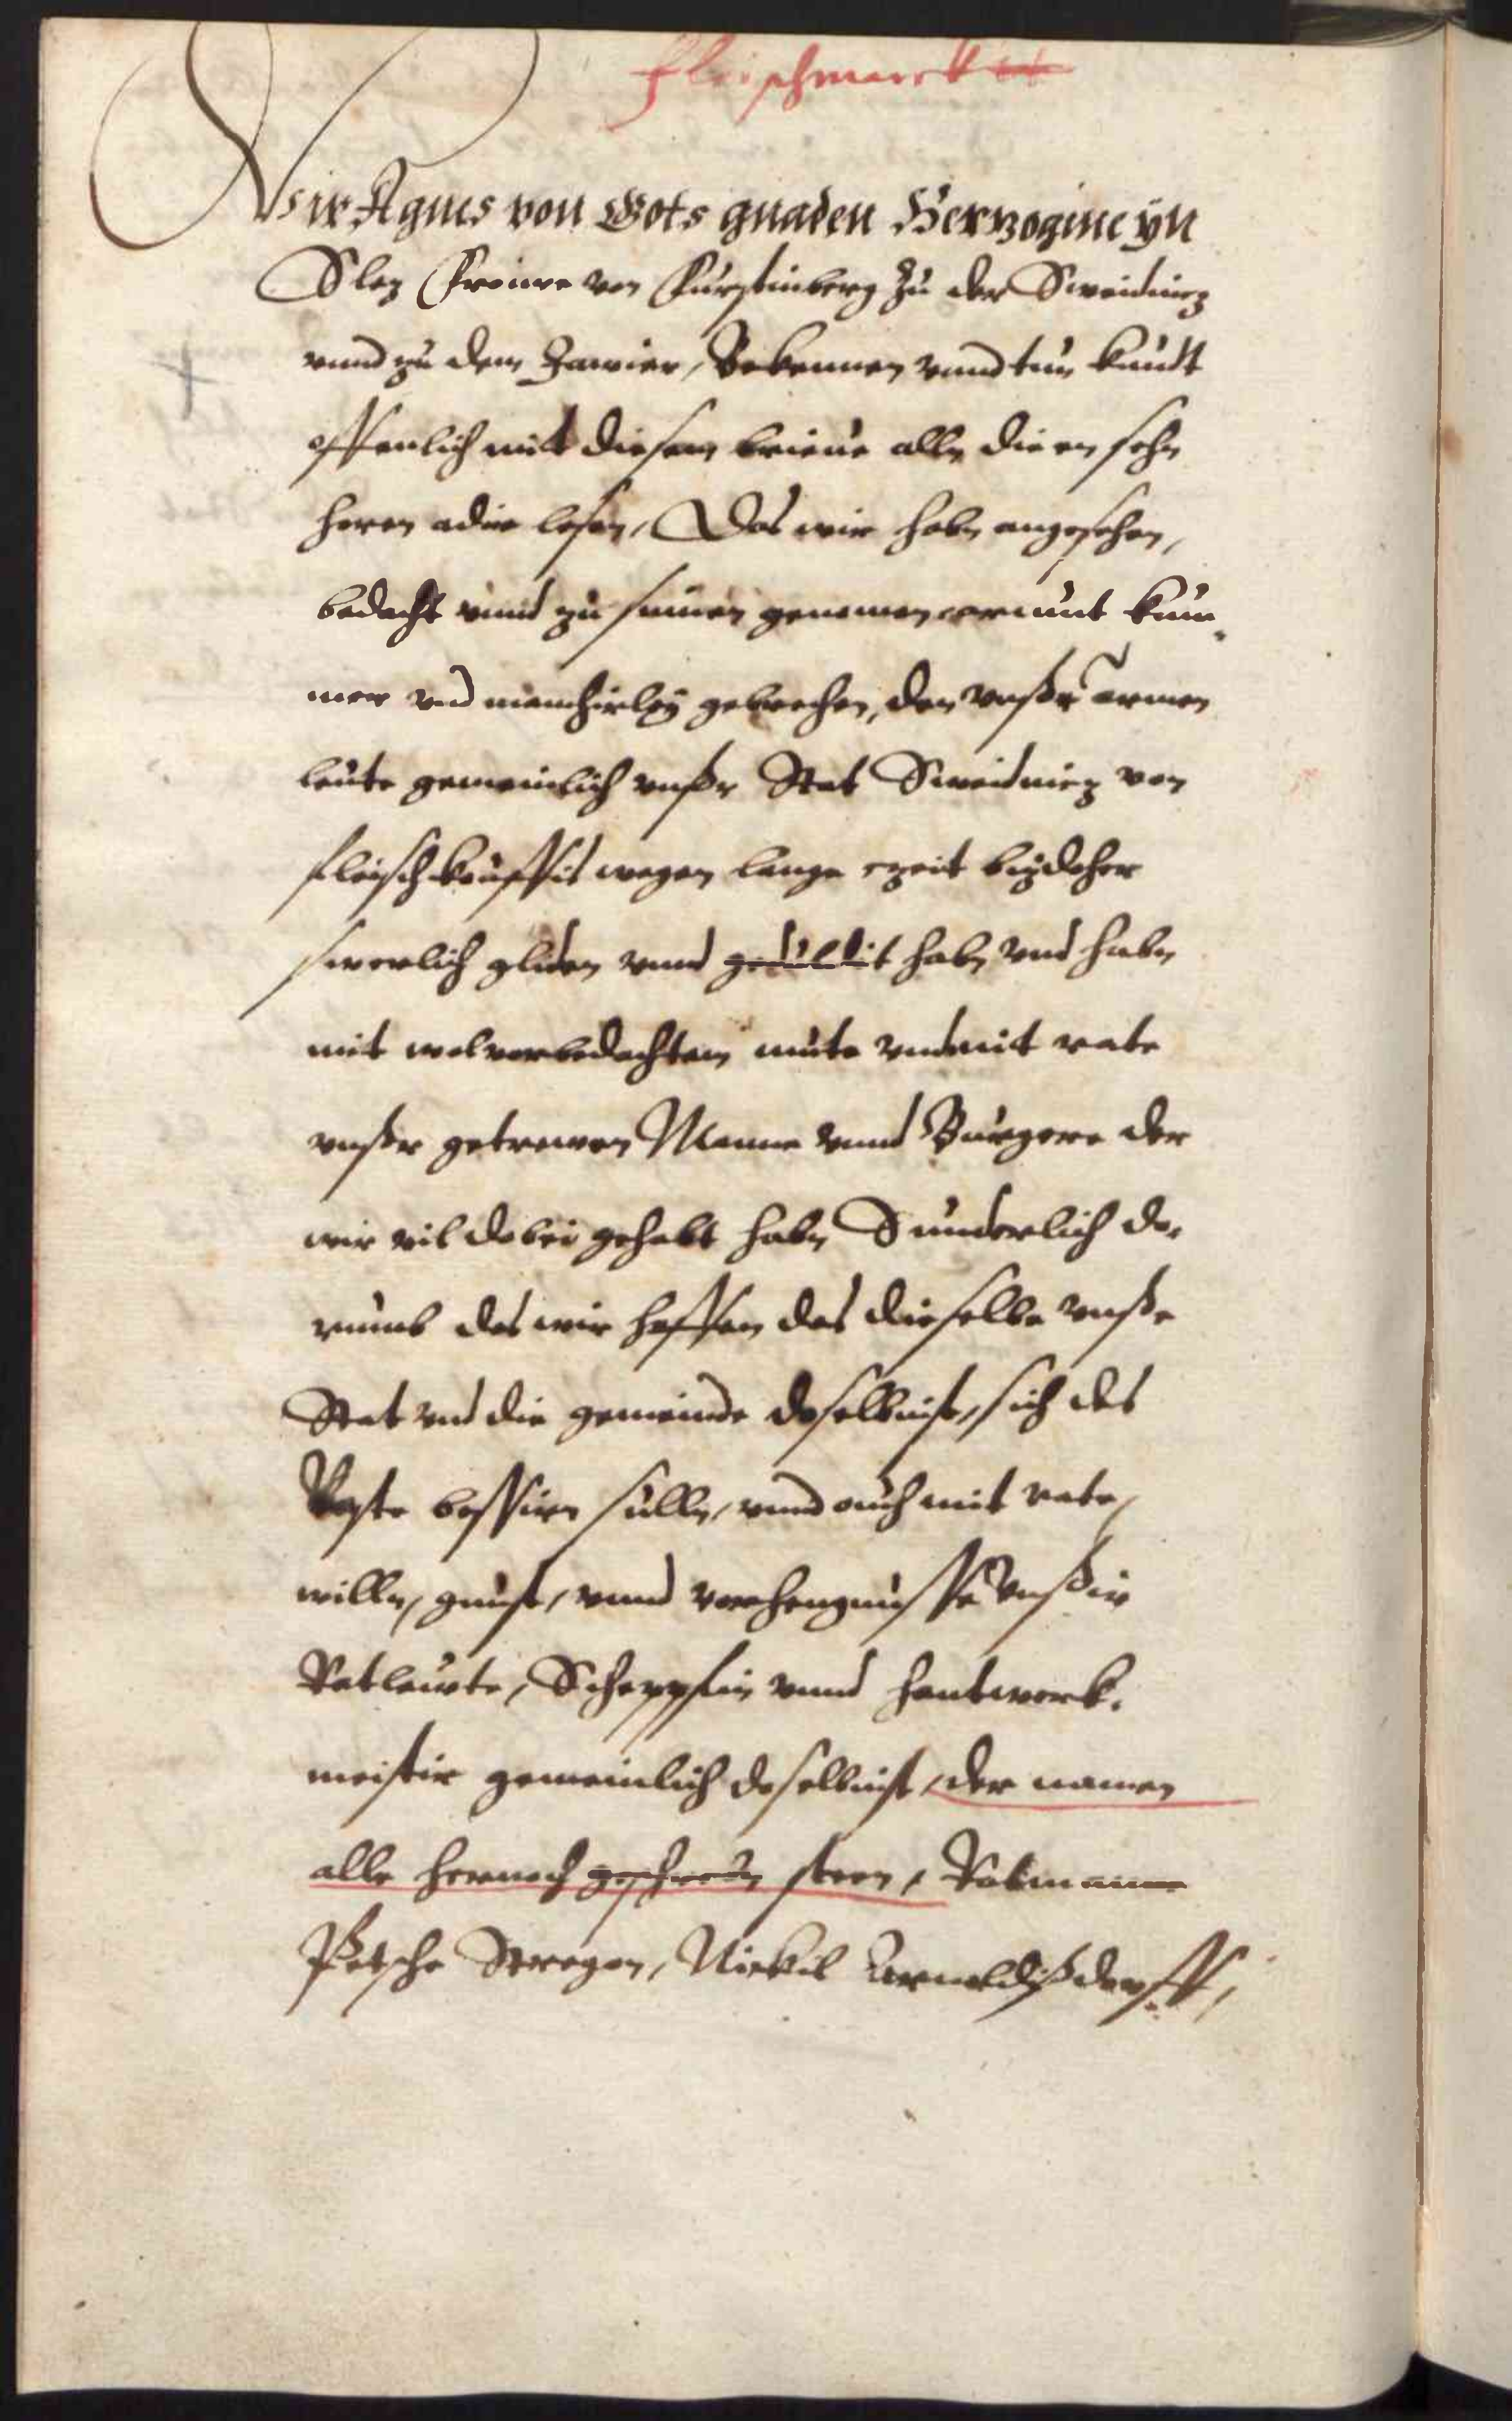 Fleischmarckt
Wir Agnes von Gots gnaden Herzogine yn
Slez Frouwe von Furstinberg zu der Sweidnicz
vnnd zu dem Jawier, Bekennen vnnd tun kundt
offenlich mit diesem brieue alln die en sehn
horen adir lesen, Das wir habn angesehen,
bedacht vnnd zu sinnen genomen armut kum¬
mer vnd manchirley gebrechen, den vnsßr armen
leute gemeinlich vnsßr Stat Sweidnicz von
fleischkouffis wegen lange czeit bizdoher
swerlich gliden vnnd geduldit habn vnd habn
mit wolverbedachtem mute vnd mit rate
vnsßr getrewen Manne vnnd Burgere der
wir vil dobei gehabt habn Sunderlich do¬
rumb das wir hoffen das dieselbe vnsße
Stat vnd die gemeinde doselbinst, sich des
Baste bessirn sulln, vnnd ouch mit rate,
willn, gunst, vnnd vorhengnusse vnsßir
Ratlewte, Scheppfin vnnd hantwerk¬
meistir gemeinlich doselbinst, der namen
alle hernoch geschrebn steen, Ratmanne
Petsche Stregon, Nickil Arnoldisßdorff,